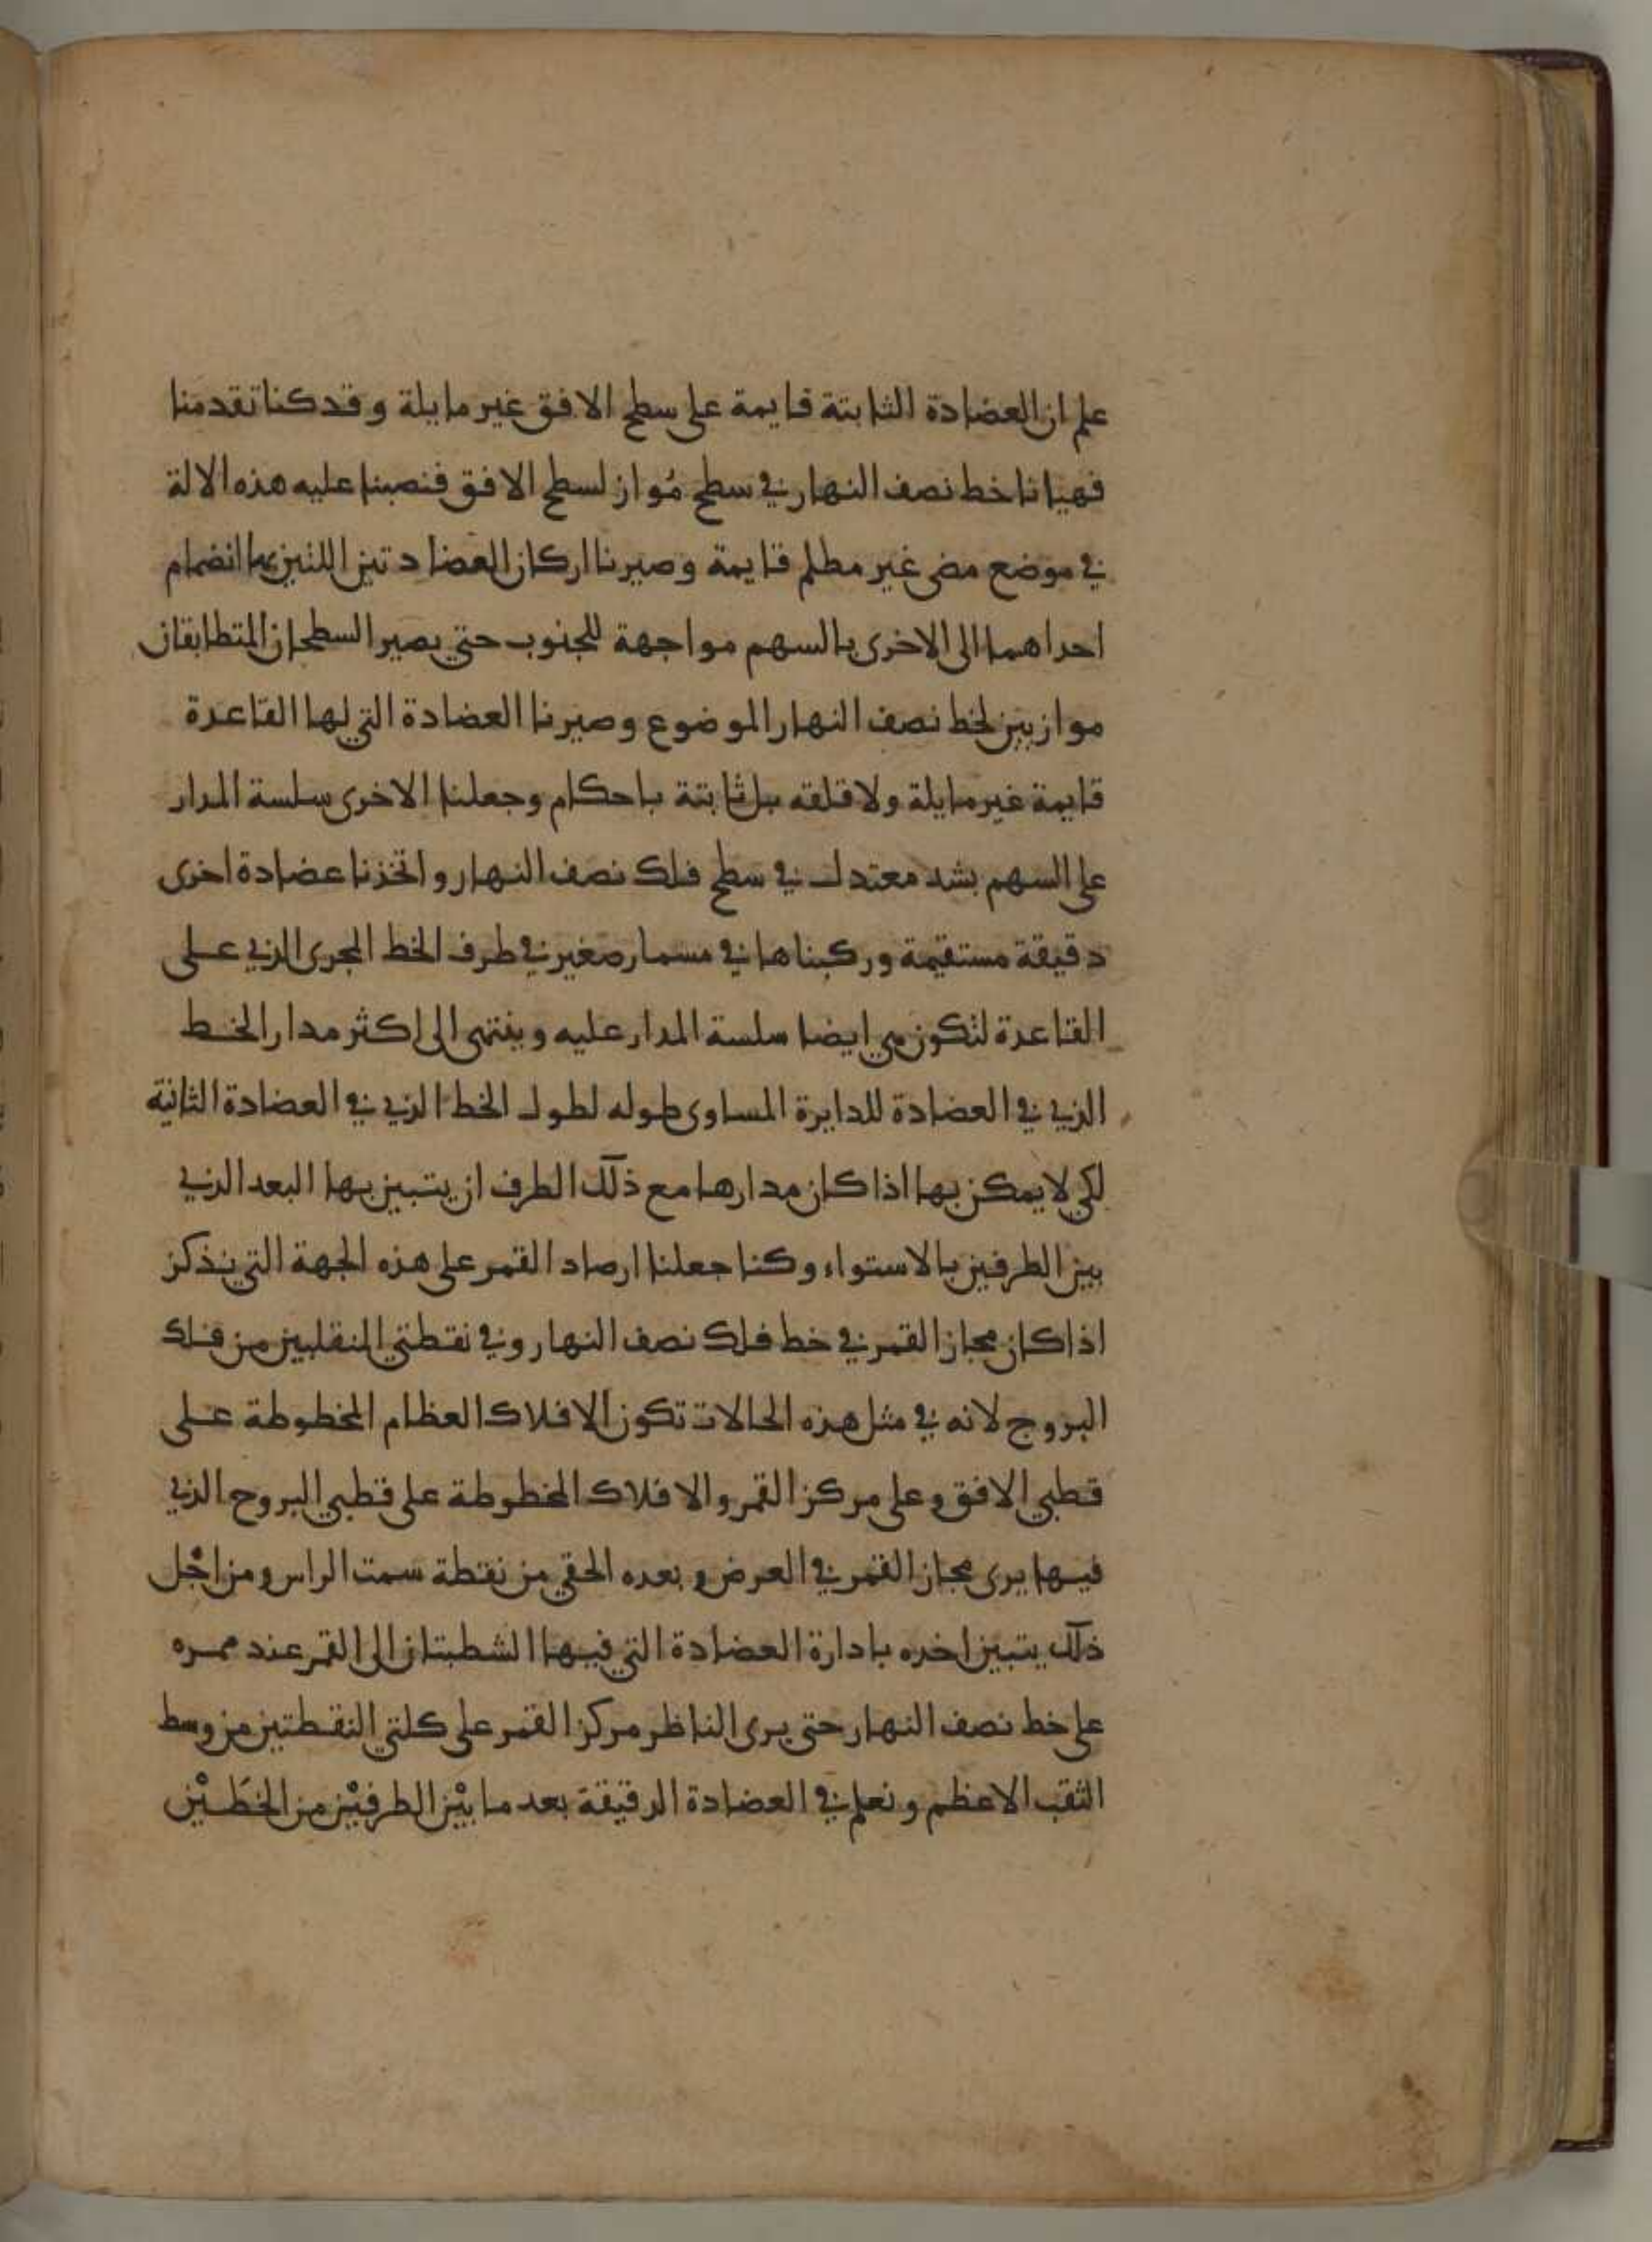 علم ان العضادة الثابتة قايمة على سطح الافق غير مايلة وقد كنا تقدمنا
فهيانا خط نصف النهار في سطح مُواز لسطح الافق فنصبنا عليه هذه الالة
في موضع مضى غير مظلم قايمة وصيرنا اركان العضادتين اللتين بهما انضمام
احداهما الى الاخرى بالسهم مواجهة للجنوب حتى يصير السطحان المتطابقان
موازيين لخط نصف النهار الموضوع وصيرنا العضادة التي لها القاعدة
قايمة غير مايلة ولا قلقه بل ثابتة باحكام وجعلنا الاخرى سلسة المدار
على السهم بشد معتدل في سطح فلك نصف النهار واتخذنا عضادة اخرى
دقيقة مستقيمة وركبناها في مسمار صغير في طرف الخط المجرى الذي على
القاعدة لتكون هي ايضا سلسة المدار عليه وينتهى الى اكثر مدار الخط
الذي في العضادة للدايرة المساوى طوله لطول الخط الذي في العضادة الثانية
لكي لا يمكن بها اذا كان مدارها مع ذلك الطرف ان يتبين بها البعد الذي
بين الطرفين بالاستواء وكنا جعلنا ارصاد القمر على هذه الجهة التي نذكر
اذا كان مجاز القمر في خط فلك نصف النهار وفي نقطتي المنقلبين من فلك
البروج لانه في مثل هذه الحالات تكون الافلاك العظام المخطوطة على
قطبي الافق وعلى مركز القمر والافلاك المخطوطة على قطبي البروج الذي
فيها يرى مجاز القمر في العرض وبعده الحقي من نقطة سمت الراس ومن اجْل
ذلك يتبين اخده بادارة العضادة التي فيها الشطبتان الى القمر عند ممره
على خط نصف النهار حتى يرى الناظر مركز القمر على كلتي النقطتين من وسط
الثقب الاعظم ونعلم في العضادة الدقيقة بعد ما بيْن الطرفيْن من الخطَيْن